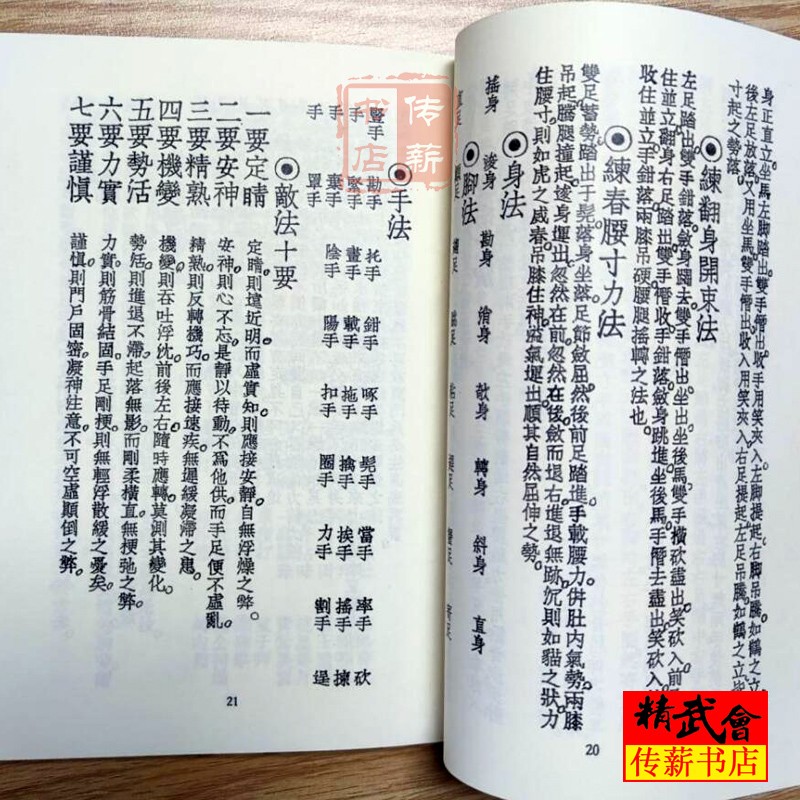 身正直立坐馬左脚踏出雙手僭出收手用笑夾入左脚提起右脚吊騰如鶴之立
後左足放落又用坐馬雙手僭出收入用笑夾入右足提起左足吊騰如鶴之立
寸起之勢落
練翻身開束法
左足踏出雙手鉗落斂身闊去雙手僭出坐出坐後馬雙手橫砍盡出笑砍入前
住並立翻身右足踏出雙手僭收手鉗落斂身跳進坐後馬手僭去盡出笑砍入
收住並立手鉗落兩膝吊硬腰腿搖轉之法也
練春腰寸力法
雙足蓄勢踏出于髡落身坐落足節斂屈然後前足踏進手載腰力併肚内氣勢兩膝
吊起騰腿撞起逡身運出忽然在前忽然在後斂而退右進退無跡沉則如貓之狀力
住腰寸則如虎之威春吊膝住神溢氣運出順其自然屈伸之勢
身法
搖身 逡身 勘身 身 敵身 轉身 斜身 直身
脚法
手法
豎手 勘手 托手 鉗手 啄手 髡手 當手 率手 砍
手 緊手 畫手 載手 拖手 擒手 挨手 搖手 揀
手 棄手 陰手 陽手 扣手 圈手 力手 割手 逞
手 罩手
敵法十要
一要定睛 定睛則遠近明而虛實知則應接安靜自無浮燥之弊
二要安神 安神則心不忘是靜以待動不為他供而手足便不虛亂
三要精熟 精熟則反轉機巧而應接速疾無遲緩凝滯之患
四要機變 機變則吞吐浮沈前後左右隨時應轉莫測其變化
五要勢活 勢活則進退不滯起落無影而剛柔橫直無梗弛之弊
六要力實 力實則筋骨結固手足剛梗則無輕浮散緩之憂矣
七要謹慎 謹慎則門戶固密凝神注意不可空虛顛倒之弊
21
20
传薪书店
精武會
传薪书店